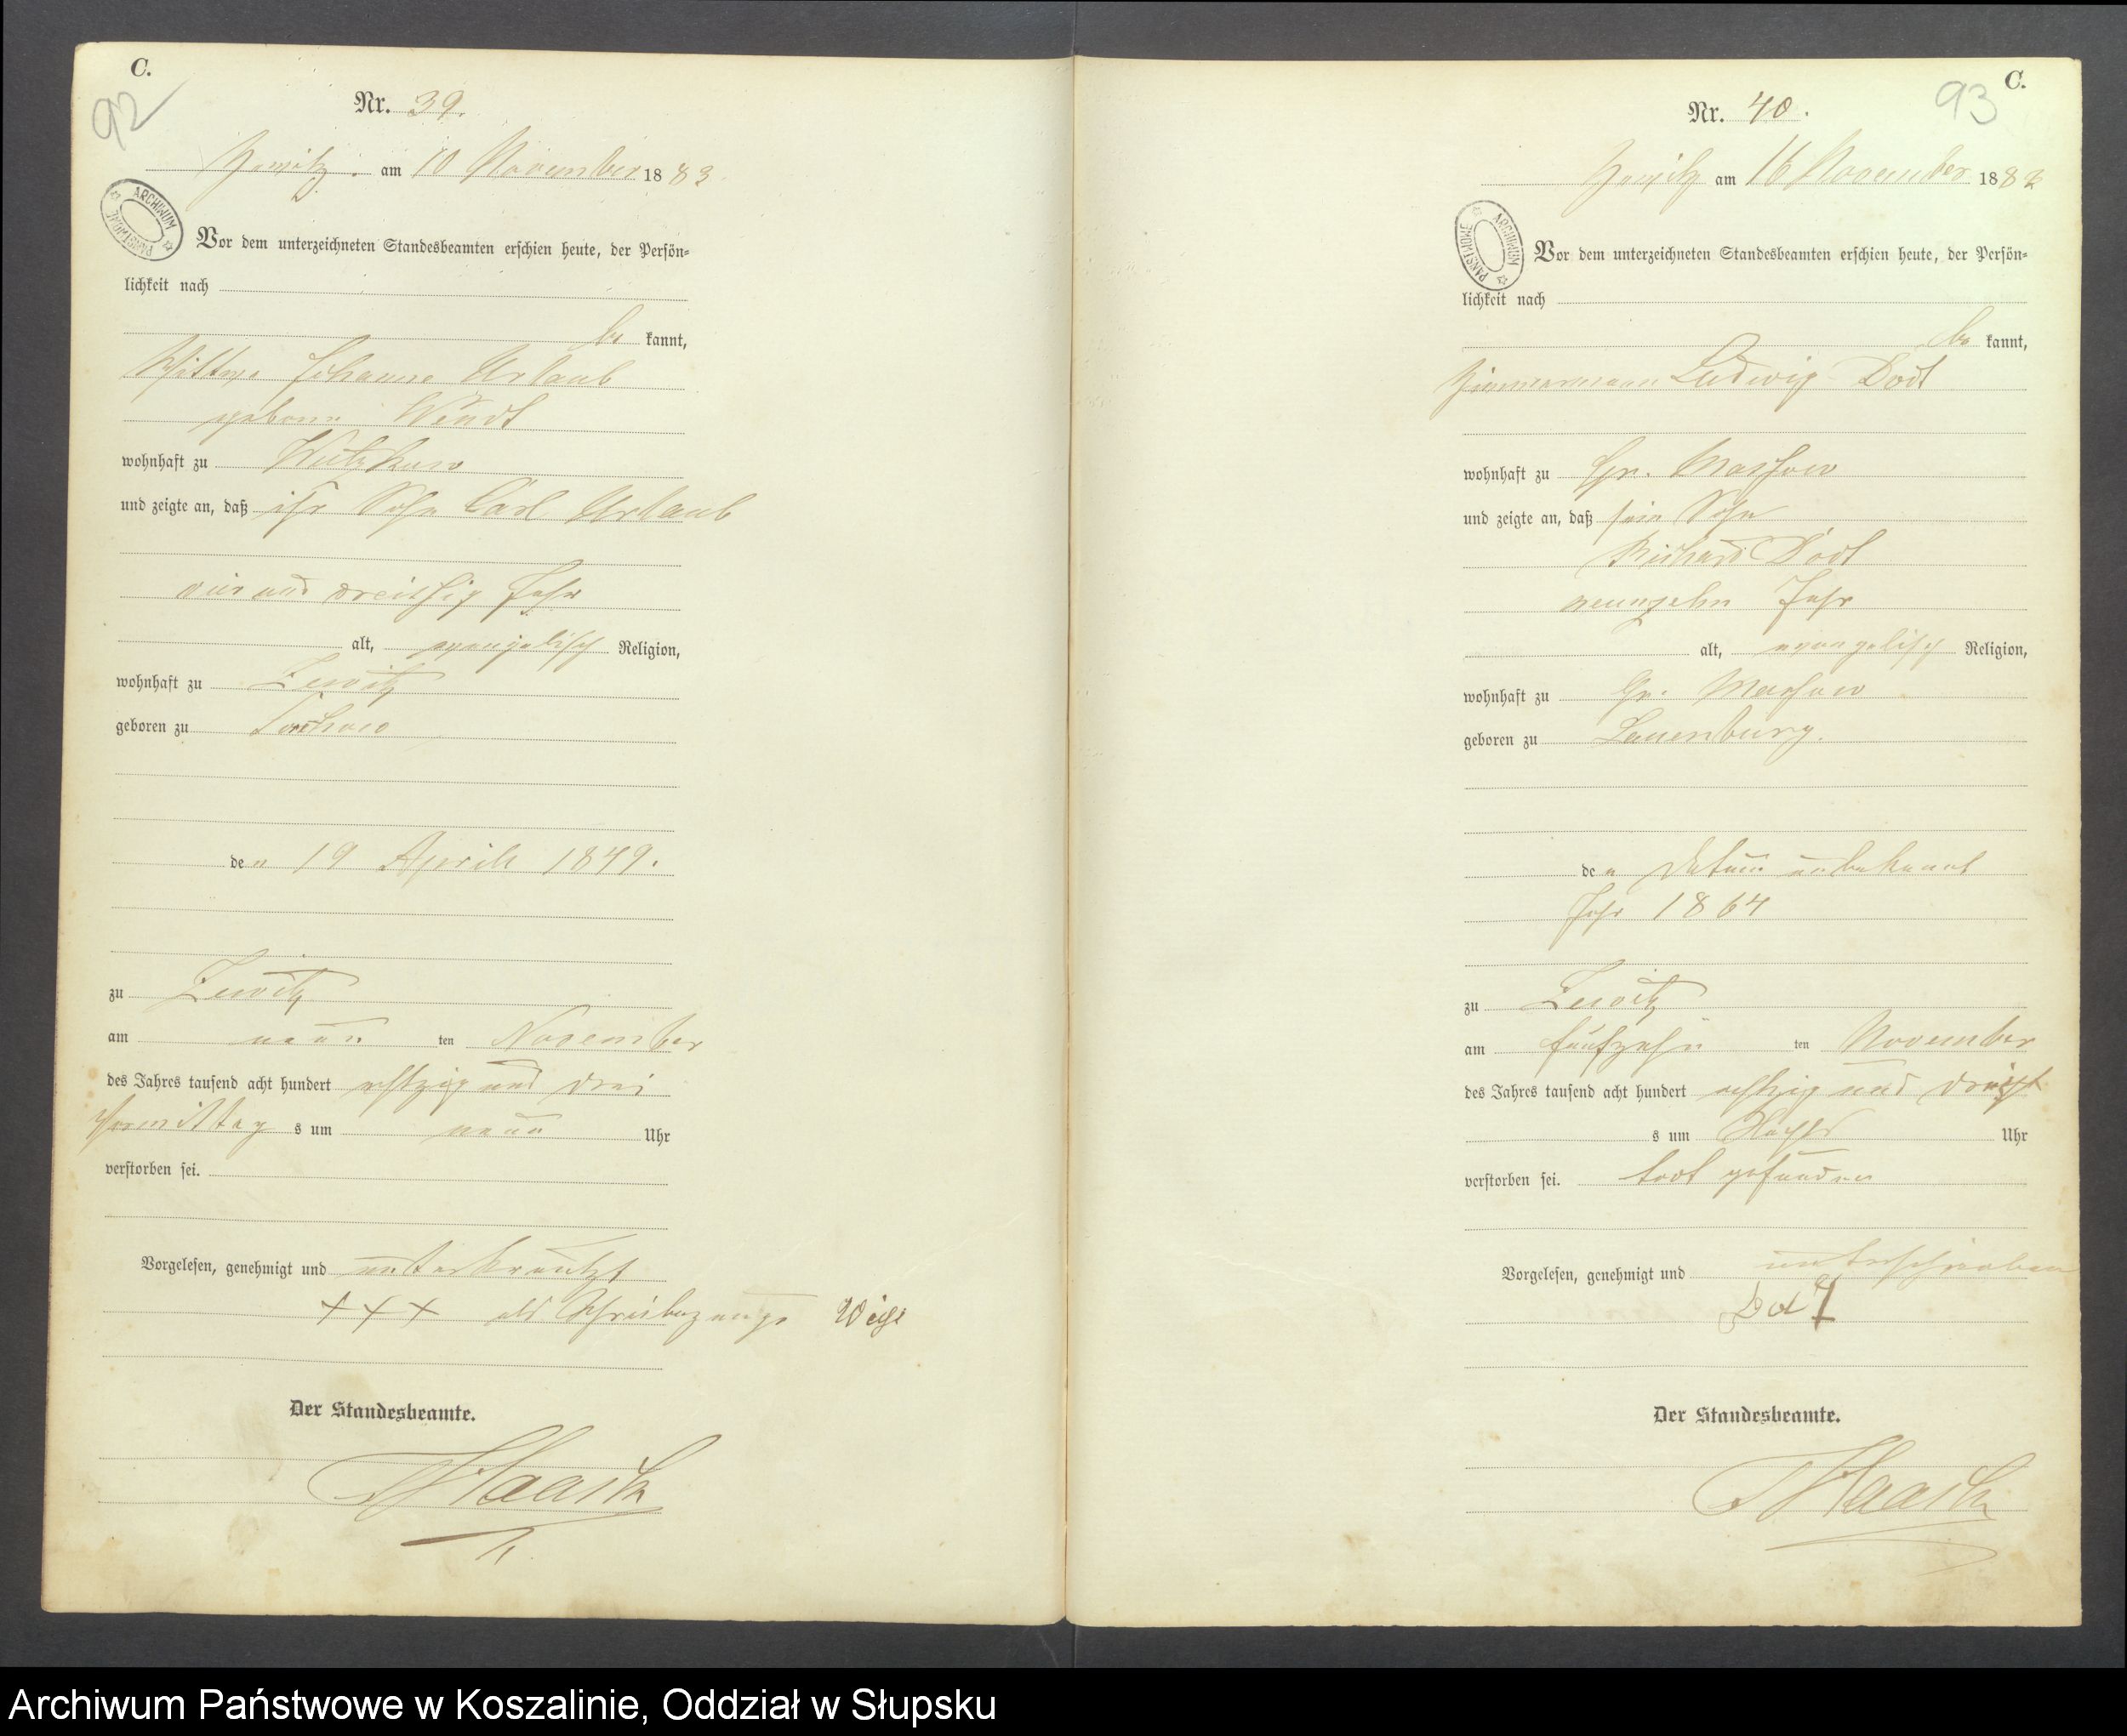 C.
92
Nr. 39.
Zewitz. am 10 November 1883
ARCHIWUM PAŃSTWOWE
Vor dem unterzeichneten Standesbeamten erschien heute, der Persön-
lichkeit nach
be kannt,
Wittwe Johanne Urlaub
geborne Wendt
wohnhaft zu Wutzkow
und zeigte an, daß ihr Sohn Carl Urlaub
und dreißig Jahr
alt, evangelisch Religion,
wohnhaft zu Zewitz
geboren zu
den 19 April 1849.
zu Zewitz
am neun ten November
des Jahres tausend acht hundert achtzig und drei
Vormittag s um neun Uhr
verstorben sei.
Vorgelesen, genehmigt und unterkreutzt
+++ als Schreibezeuge
Der Standesbeamte.
C.
93
Nr. 40.
Zewitz am 16 November 1883
ARCHIWUM PAŃSTWOWE
Vor dem unterzeichneten Standesbeamten erschien heute, der Persön-
lichkeit nach
be kannt,
Zimmermann Ludwig Dodt
wohnhaft zu Gr. Massow
und zeigte an, daß sein Sohn
Richard Dodt
neunzehn Jahr
alt, evangelisch Religion,
wohnhaft zu Gr. Massow
geboren zu Lauenburg.
den Datum unbekannt
Jahr 1864
zu Zewitz
am fünfzehn ten November
des Jahres tausend acht hundert achtzig und drei
s um Nachts Uhr
verstorben sei. todt gefunden
Vorgelesen, genehmigt und unterschrieben
Der Standesbeamte.
Archiwum Państwowe w Koszalinie, Oddział w Słupsku